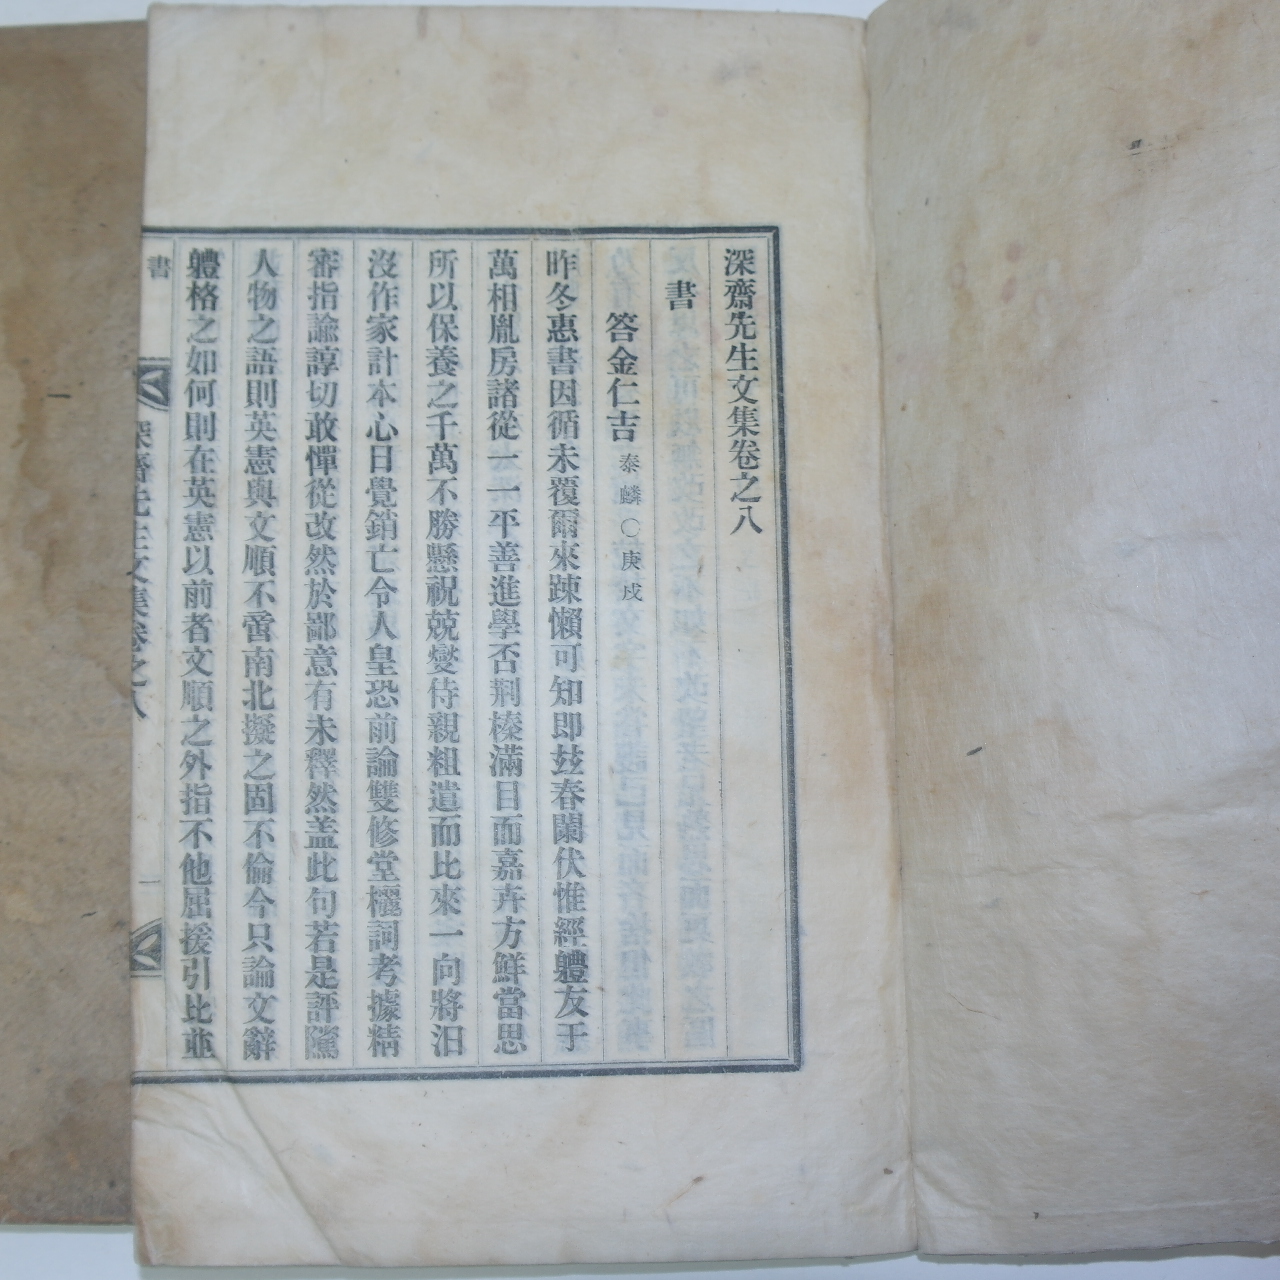 深齋先生文集卷之八
書
答金仁吉 泰麟○庚戌
昨冬惠書因循未覆爾來踈懶可知即玆春闌伏惟經軆友于
萬相胤房諸從一一平善進學否荆榛滿目而嘉卉方鮮當思
所以保養之千萬不勝懸祝兢燮侍親粗遣而比來一向將汨
沒作家計本心日覺銷亡令人皇恐前論雙修堂欐詞考據精
審指諭諄切敢憚從改然於鄙意有未釋然盖此句若是評隲
人物之語則英憲與文順不啻南北擬之固不倫今只論文辭
軆格之如何則在英憲以前者文順之外指不他屈援引比並
書
深齋先生文集卷之八
一